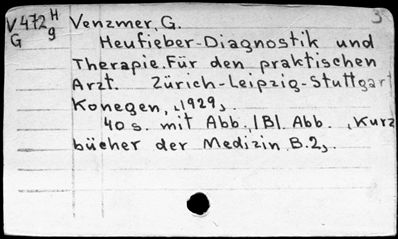 V472 H g Venzmer, G. 3
G Heufieber-Diagnostik und
Therapie. Für den praktischen
Arzt. Zürich-Leipzig-Stuttgart
Konegen, „1929„.
40 s. mit Abb., 1 Bl. Abb. „Kurz
bücher der Medizin B.2„.